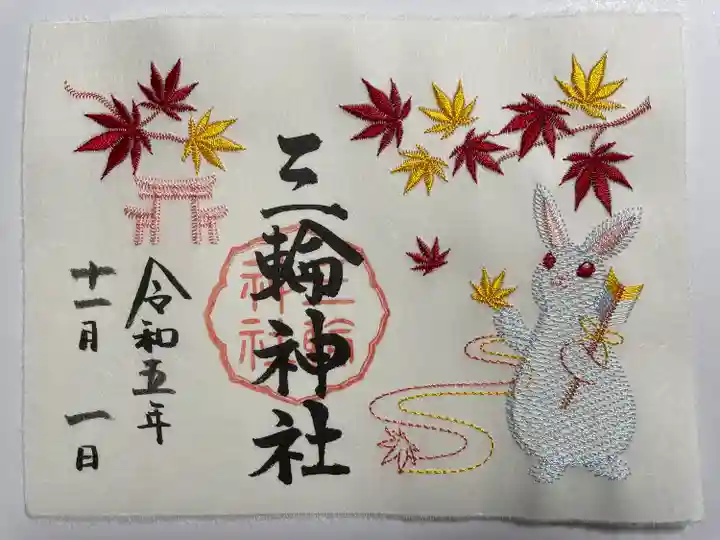 三輪神社
三輪神社
令和五年
十一月 一日